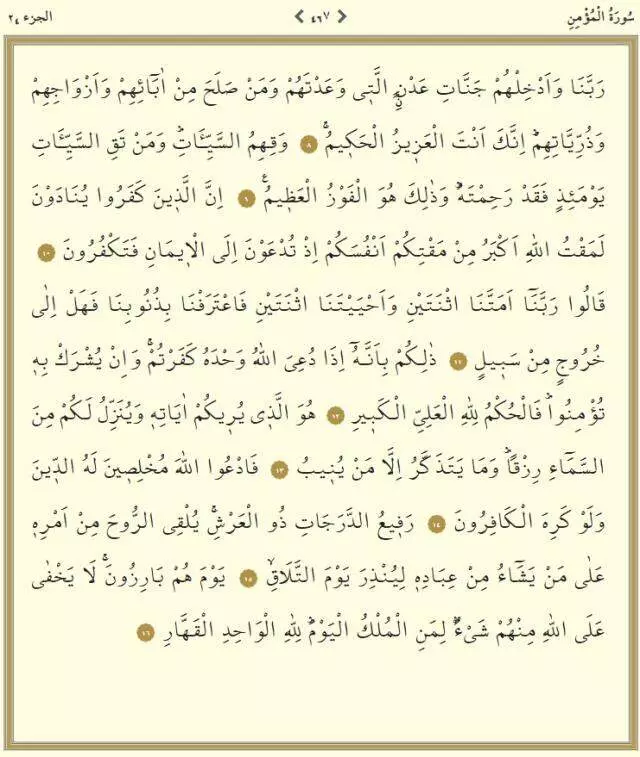 سُورَةُ الْمُؤْمِنِ ❮ ٤٦٧ ❯ الجزء ٢٤
رَبَّنَا وَاَدْخِلْهُمْ جَنَّاتِ عَدْنٍۨ الَّتٖى وَعَدْتَهُمْ وَمَنْ صَلَحَ مِنْ اٰبَٓائِهِمْ وَاَزْوَاجِهِمْ
وَذُرِّيَّاتِهِمْؕ اِنَّكَ اَنْتَ الْعَزٖيزُ الْحَكٖيمُۙ ٨ وَقِهِمُ السَّيِّـَٔاتِؕ وَمَنْ تَقِ السَّيِّـَٔاتِ
يَوْمَئِذٍ فَقَدْ رَحِمْتَهُؕ وَذٰلِكَ هُوَ الْفَوْزُ الْعَظٖيمُࣖ ٩ اِنَّ الَّذٖينَ كَفَرُوا يُنَادَوْنَ
لَمَقْتُ اللّٰهِ اَكْبَرُ مِنْ مَقْتِكُمْ اَنْفُسَكُمْ اِذْ تُدْعَوْنَ اِلَى الْاٖيمَانِ فَتَكْفُرُونَ ١٠
قَالُوا رَبَّنَٓا اَمَتَّنَا اثْنَتَيْنِ وَاَحْيَيْتَنَا اثْنَتَيْنِ فَاعْتَرَفْنَا بِذُنُوبِنَا فَهَلْ اِلٰى
خُرُوجٍ مِنْ سَبٖيلٍ ١١ ذٰلِكُمْ بِاَنَّهُٓ اِذَا دُعِىَ اللّٰهُ وَحْدَهُ كَفَرْتُمْۚ وَاِنْ يُشْرَكْ بِهٖ
تُؤْمِنُواؕ فَالْحُكْمُ لِلّٰهِ الْعَلِىِّ الْكَبٖيرِ ١٢ هُوَ الَّذٖى يُرٖيكُمْ اٰيَاتِهٖ وَيُنَزِّلُ لَكُمْ مِنَ
السَّمَٓاءِ رِزْقاًؕ وَمَا يَتَذَكَّرُ اِلَّا مَنْ يُنٖيبُ ١٣ فَادْعُوا اللّٰهَ مُخْلِصٖينَ لَهُ الدّٖينَ
وَلَوْ كَرِهَ الْكَافِرُونَ ١٤ رَفٖيعُ الدَّرَجَاتِ ذُو الْعَرْشِۚ يُلْقِى الرُّوحَ مِنْ اَمْرِهٖ
عَلٰى مَنْ يَشَٓاءُ مِنْ عِبَادِهٖ لِيُنْذِرَ يَوْمَ التَّلَاقِۙ ١٥ يَوْمَ هُمْ بَارِزُونَۚ لَا يَخْفٰى
عَلَى اللّٰهِ مِنْهُمْ شَیْءٌؕ لِمَنِ الْمُلْكُ الْيَوْمَؕ لِلّٰهِ الْوَاحِدِ الْقَهَّارِ ١٦